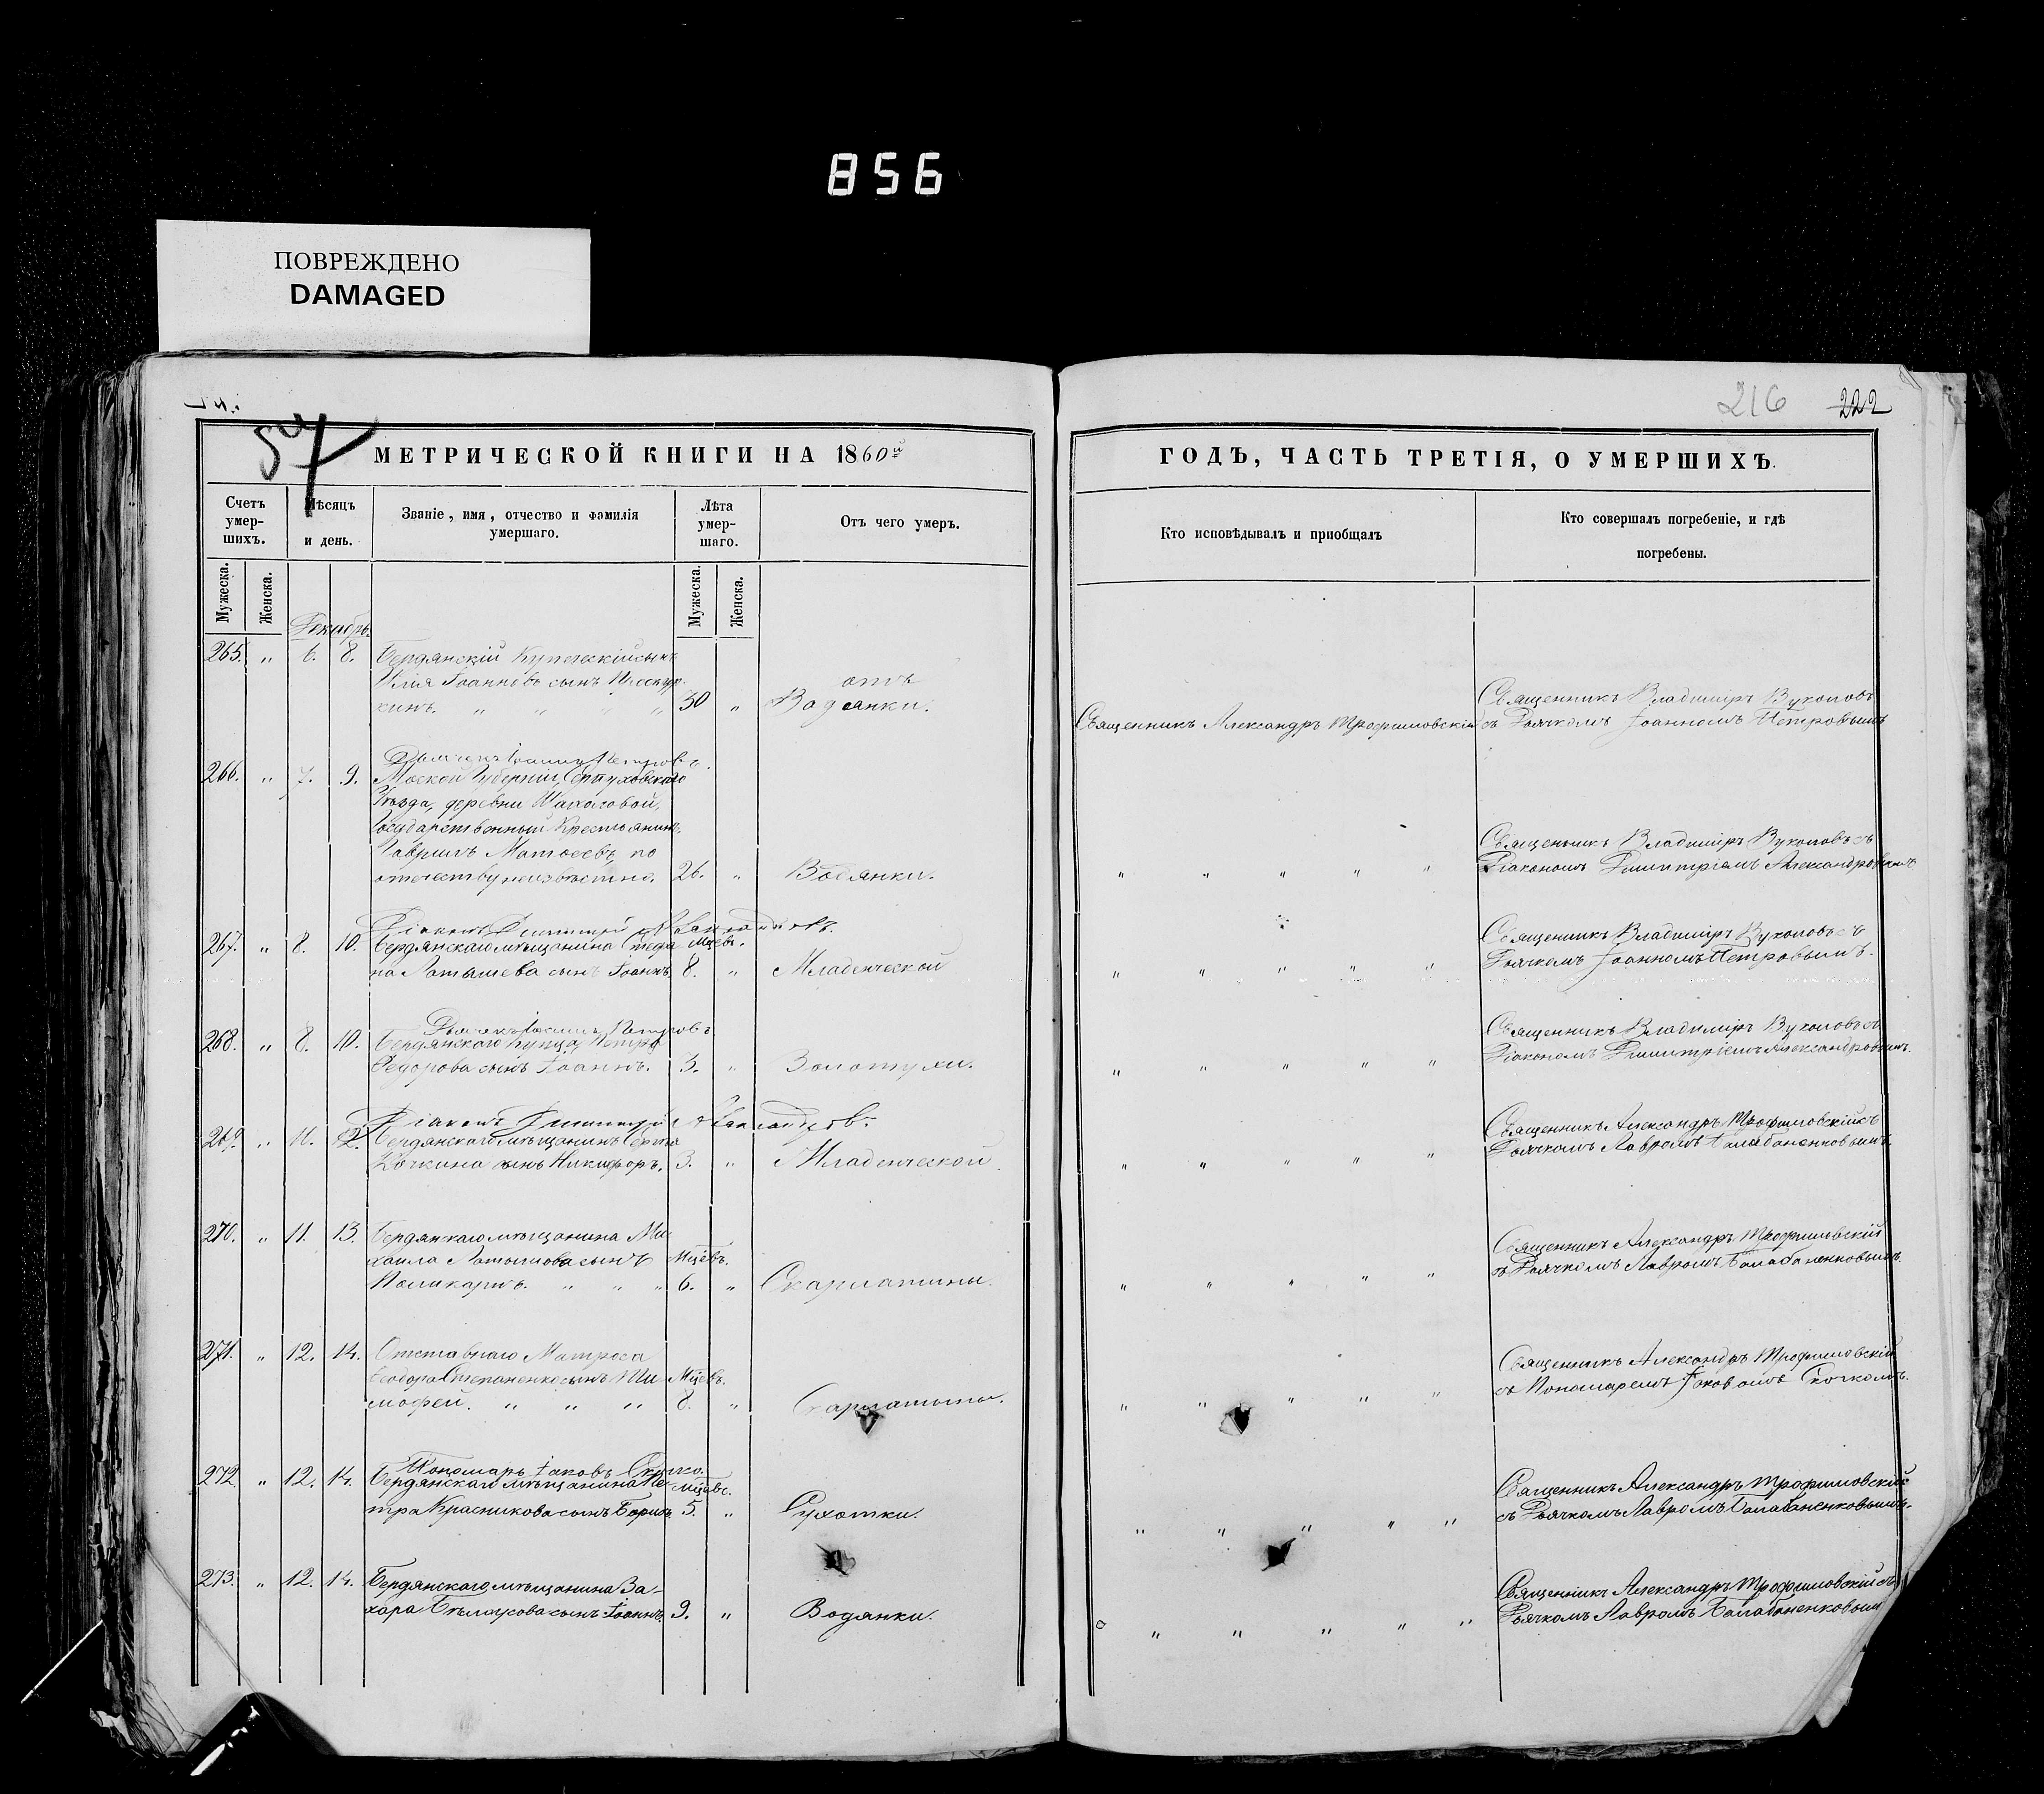 856
ПОВРЕЖДЕНО
DAMAGED
216 222
57
МЕТРИЧЕСКОЙ КНИГИ НА 1860й
ГОДЪ, ЧАСТЬ ТРЕТІЯ, О УМЕРШИХЪ.
Счетъ умер-шихъ.
Мѣсяцъ и день.
Званіе, имя, отчество и фамилія умершаго.
Лѣта умер-шаго.
Отъ чего умеръ.
Кто исповѣдывалъ и приобщалъ
Кто совершалъ погребеніе, и гдѣ погребены.
Мужеска. Женска.
Мужеска. Женска.
Декабрь.
265. " 6. 8. Бердянскій Купеческій сынъ
Илія Іоанновъ сынъ
кинъ. " " " " 30 " отъ Водянки.
Священникъ Александръ Трофимовскій
Священникъ Владиміръ Вукоповъ
съ Дьячкомъ Іоанномъ Петровымъ
Дьячекъ Іоаннъ Петровъ.
266. " 7. 9. Моской Губерніи, Серпуховскаго
Уѣзда, деревни
Государственный Крестьянинъ,
Гавриилъ Матвеевъ, по
отечеству неизвѣстно. 26. " Водянки.
" " " " "
Священникъ Владиміръ Вукоповъ съ
Діакономъ Димитріемъ Александровымъ
Діаконъ Димитрій Александровъ.
267. " 8. 10. Бердянскаго мѣщанина Стефа- Мцевъ.
на Латышева сынъ Іоаннъ 8. " Младенческой
" " " " "
Священникъ Владиміръ Вукоповъ съ
Дьячкомъ Іоанномъ Петровымъ.
Дьячекъ Іоаннъ Петровъ
268. " 8. 10. Бердянскаго Купца Петра
Федорова сынъ Іоаннъ. 3. " Золотухи.
" " " " "
Священникъ Владиміръ Вукоповъ съ
Діакономъ Димитріемъ Александровымъ.
Діаконъ Димитрій Александровъ.
269. " 11. 12. Бердянскаго мѣщанина
Кочкина сынъ Никифоръ. 3. " Младенческой.
" " " " "
Священникъ Александръ Трофимовскій съ
Дьячкомъ Лавромъ Балабаненковымъ.
270. " 11. 13. Бердянскаго мѣщанина Ми-
хаила Латышова сынъ Мцевъ.
Поликарпъ. " " " 6. " Скарлатины.
" " " " "
Священникъ Александръ Трофимовскій
съ Дьячкомъ Лавромъ Балабаненковымъ.
271. " 12. 14. Отставнаго Матроса
Ѳеодора Степаненко сынъ Ти- Мцевъ.
мофей. " " " 8. " Скарлатины.
" " " " "
Священникъ Александръ Трофимовскій
съ Пономаремъ Іаковомъ
Пономарь Іаковъ
272. " 12. 14. Бердянскаго мѣщанина Пе- мцевъ.
тра Красникова сынъ Борисъ 5. " Сухотки.
" " " " "
Священникъ Александръ Трофимовскій
съ Дьячкомъ Лавромъ Балабаненковымъ.
273. " 12. 14. Бердянскаго мѣщанина За-
хара Бѣлоусова сынъ Іоаннъ. 9. " Водянки.
" " " " "
Священникъ Александръ Трофимовскій съ
Дьячкомъ Лавромъ Балабаненковымъ